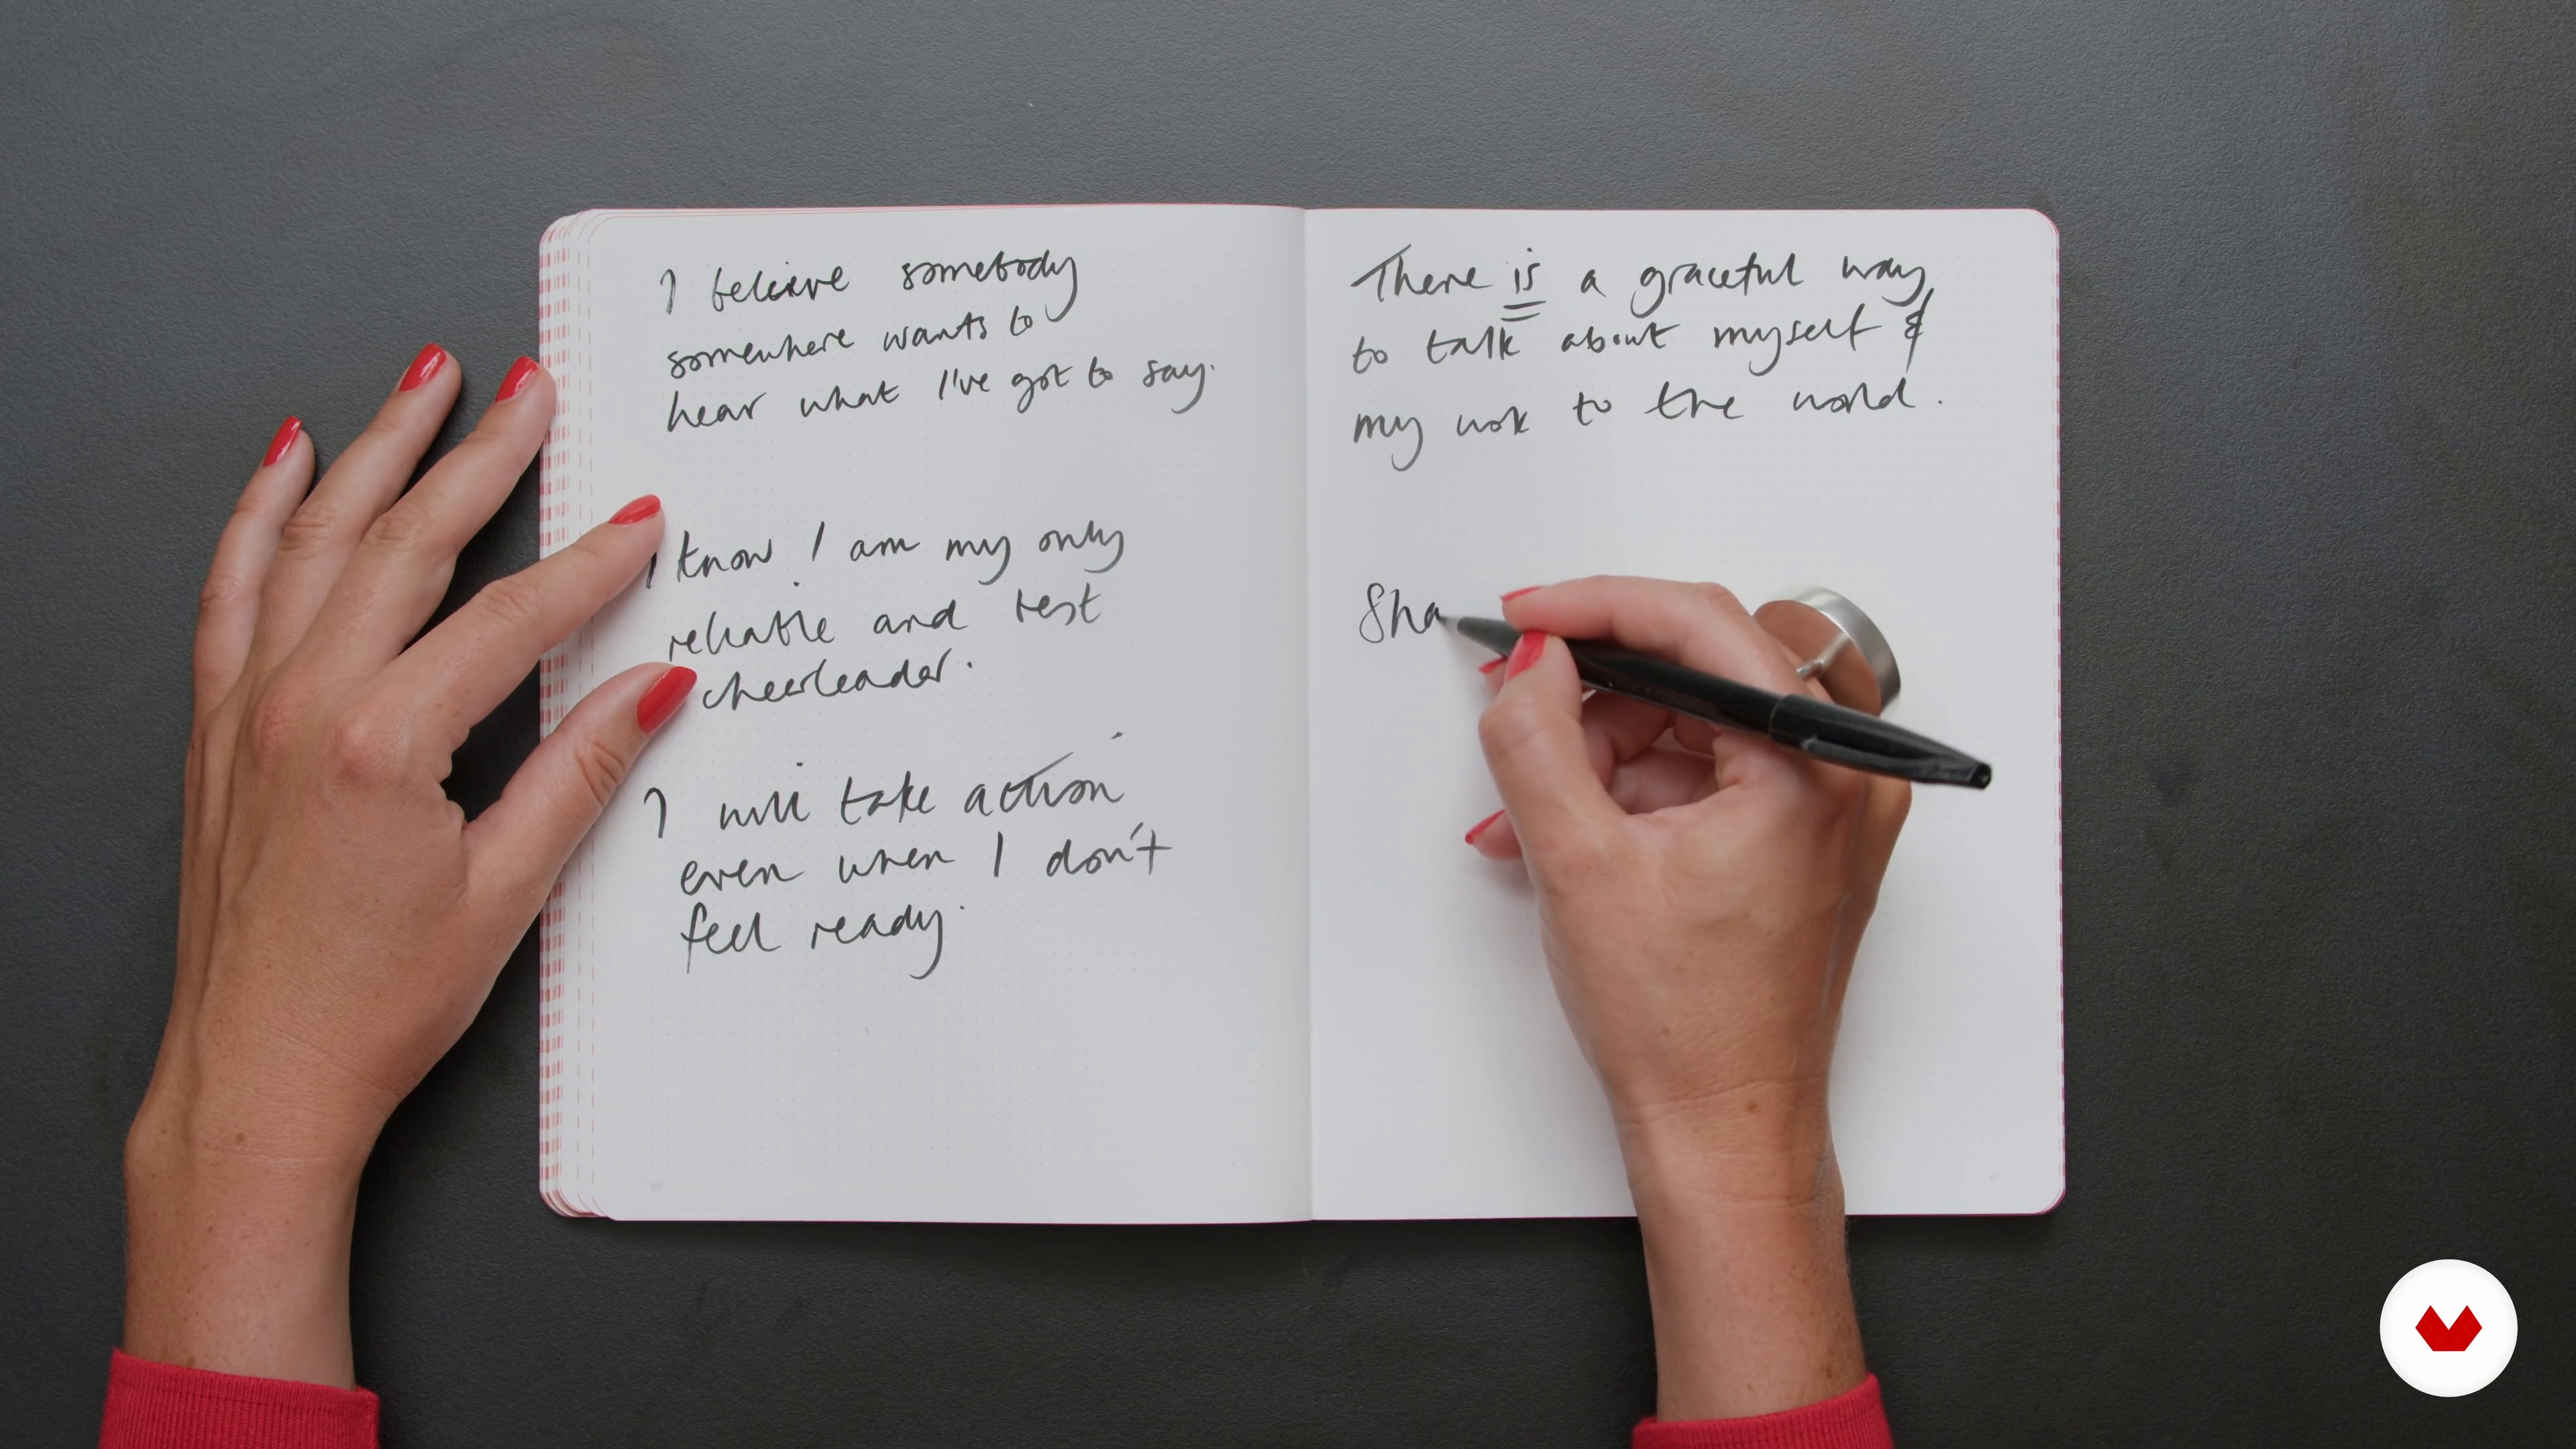 I believe somebody
somewhere wants to
hear what I've got to say.
I know I am my only
reliable and best
cheerleader.
I will take action
even when I don't
feel ready.
There is a graceful way
to talk about myself &
my work to the world.
Sha